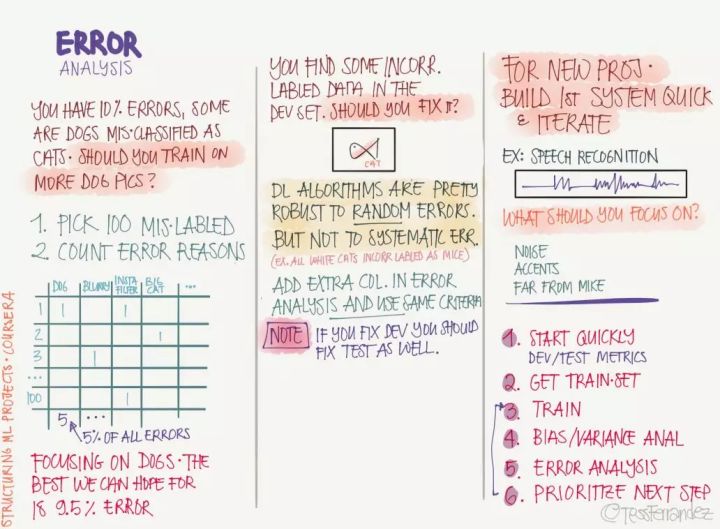 ERROR
ANALYSIS
YOU HAVE 10% ERRORS, SOME
ARE DOGS MIS·CLASSIFIED AS
CATS. SHOULD YOU TRAIN ON
MORE DOG PICS?
1. PICK 100 MIS·LABLED
2. COUNT ERROR REASONS
DOG BLURRY INSTA FILTER BIG CAT ...
1 1 1
2 1
3 1
...
100 1
5 ...
5% OF ALL ERRORS
FOCUSING ON DOGS · THE
BEST WE CAN HOPE FOR
IS 9.5% ERROR
STRUCTURING ML PROJECTS · COURSERA
YOU FIND SOME INCORR.
LABLED DATA IN THE
DEV SET. SHOULD YOU FIX IT?
CAT
DL ALGORITHMS ARE PRETTY
ROBUST TO RANDOM ERRORS.
BUT NOT TO SYSTEMATIC ERR.
(EX. ALL WHITE CATS INCORR LABLED AS MICE)
ADD EXTRA COL. IN ERROR
ANALYSIS AND USE SAME CRITERIA
NOTE IF YOU FIX DEV YOU SHOULD
FIX TEST AS WELL.
FOR NEW PROJ.
BUILD 1st SYSTEM QUICK
& ITERATE
EX: SPEECH RECOGNITION
WHAT SHOULD YOU FOCUS ON?
NOISE
ACCENTS
FAR FROM MIKE
1. START QUICKLY
DEV/TEST METRICS
2. GET TRAIN·SET
3. TRAIN
4. BIAS/VARIANCE ANAL
5. ERROR ANALYSIS
6. PRIORITIZE NEXT STEP
@TessFerrandez